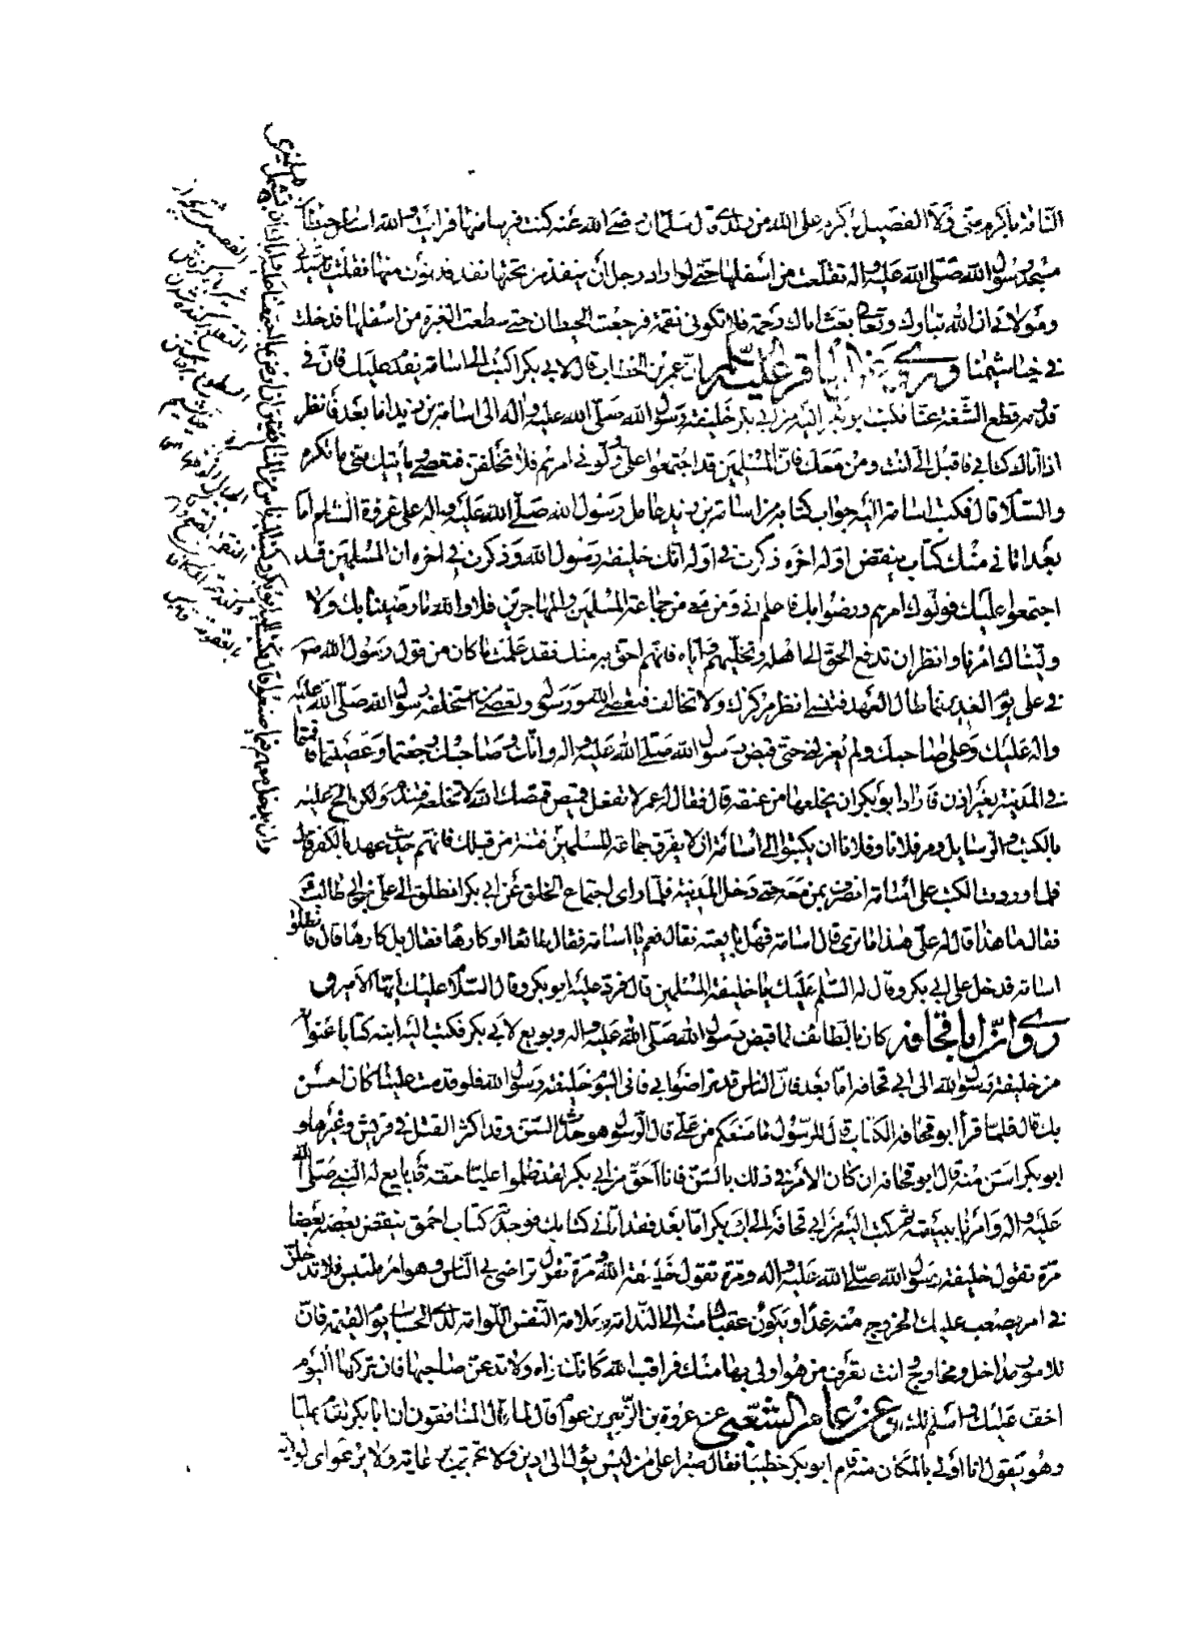 الناقة باكرم منى ولا الفصيل باكرم على الله من ولدى قال سلمان رضى الله عنه كنت قريبا منها فرأيت والله اساس حيطان
مسجد رسول الله صلى الله عليه واله تقلعت من اسفلها حتى لو اراد رجل ان ينفذ من تحتها نفذ فدنوت منها فقلت يا سيدتى
ومولاتى ان الله تبارك وتعالى بعث اباك رحمة فلا تكونى نقمة فرجعت الحيطان حتى سطعت الغبرة من اسفلها فدخلت
فى خياشيمنا وروى عن الباقر عليه السلم ان عمر بن الخطاب قال لابى بكر اكتب الى اسامة يقدم عليك فان فى
قدومه قطع الشنعة عنا فكتب ابو بكر اليه من ابى بكر خليفة رسول الله صلى الله عليه واله الى اسامة بن زيد اما بعد فانظر
اذا اتاك كتابى فاقبل الى انت ومن معك فان المسلمين قد اجتمعوا على وولونى امرهم فلا تخلفن فتعصى ويأتيك منى ما تكره
والسلام قال فكتب اسامة اليه جواب كتابه من اسامة بن زيد عامل رسول الله صلى الله عليه واله على غزوة الشام اما
بعد اتانى منك كتاب ينقض اوله اخره ذكرت فى اوله انك خليفة رسول الله وذكرت فى اخره ان المسلمين قد
اجتمعوا عليك فولوك امرهم ورضوا بك فاعلم انى ومن معى من جماعة المسلمين والمهاجرين فلا والله ما رضينا بك ولا
وليناك امرنا وانظر ان تدفع الحق الى اهله وتخليهم واياه فانهم احق به منك فقد علمت ما كان من قول رسول الله ص
فى على يوم الغدير فما طال العهد فتنسى انظر مركزك ولا تخالف فتعصى الله ورسوله وتعصى من استخلفه رسول الله صلى الله عليه
واله عليك وعلى صاحبك ولم يعزلنى حتى قبض رسول الله صلى الله عليه واله وانك وصاحبك رجعتما وعصيتما فاقمتما
فى المدينة بغير اذن فاراد ابو بكر ان يخلعها من عنقه قال فقال له عمر لا تفعل قميص قمصك الله لا تخلعه فتندم ولكن الح عليه
بالكتب والرسايل ومر فلانا وفلانا ان يكتبوا الى اسامة ان لا يفرق جماعة المسلمين فتنة من قبلك فانهم حديث عهد بالكفر قال
فلما وردت الكتب على اسامة انصرف بمن معه حتى دخل المدينة فلما راى اجتماع الخلق على ابى بكر انطلق الى على بن ابى طالب
فقال ما هذا قال له على هذا ما ترى قال اسامة فهل بايعته فقال نعم يا اسامة فقال طائعا او كارها فقال بل كارها قال فانطلق
اسامة فدخل على ابى بكر وقال له السلم عليك يا خليفة المسلمين قال فرد عليه ابو بكر وقال السلام عليك ايها الامير و
روى ان ابا قحافة كان بالطائف لما قبض رسول الله صلى الله عليه واله وبويع لابى بكر فكتب اليه ابنه كتابا عنوانه
من خليفة رسول الله الى ابى قحافة اما بعد فان الناس قد تراضوا بى فانى اليوم خليفة رسول الله فلو قدمت علينا كان احسن
بك قال فلما قرأ ابو قحافة الكتاب قال للرسول ما منعكم من على قال الرسول هو حدث السن وقد اكثر القتل فى قريش وغيرها و
ابو بكر اسن منه قال ابو قحافة ان كان الامر فى ذلك بالسن فانا احق من ابى بكر لقد ظلموا عليا حقه وقد بايع له النبى صلى الله
عليه واله وامرنا ببيعته ثم كتب اليه من ابى قحافة الى ابى بكر اما بعد فقد اتانى كتابك فوجدته كتاب احمق ينقض بعضه بعضا
مرة تقول خليفة رسول الله صلى الله عليه واله ومرة تقول خليفة الله ومرة تقول تراضى بى الناس وهو امر ملتبس فلا تدخلن
فى امر يصعب عليك الخروج منه غدا ويكون عقباك منه الى الندامة وملامة النفس اللوامة لدى الحساب يوم القيمة فان
للامور مداخل ومخارج وانت تعرف من هو اولى بها منك فراقب الله كانك تراه ولا تدعن صاحبها فان تركها اليوم
اخف عليك واسلم لك وعن عامر الشعبى عن عروة بن الزبير بن عوام قال لما قال المنافقون ان ابا بكر تقدم عليا
وهو يقول انا اولى بالمكان منه قام ابو بكر خطيبا فقال صبرا على من ليس يؤل الى دين ولا يحتجب برعاية ولا يرعوى لولاية